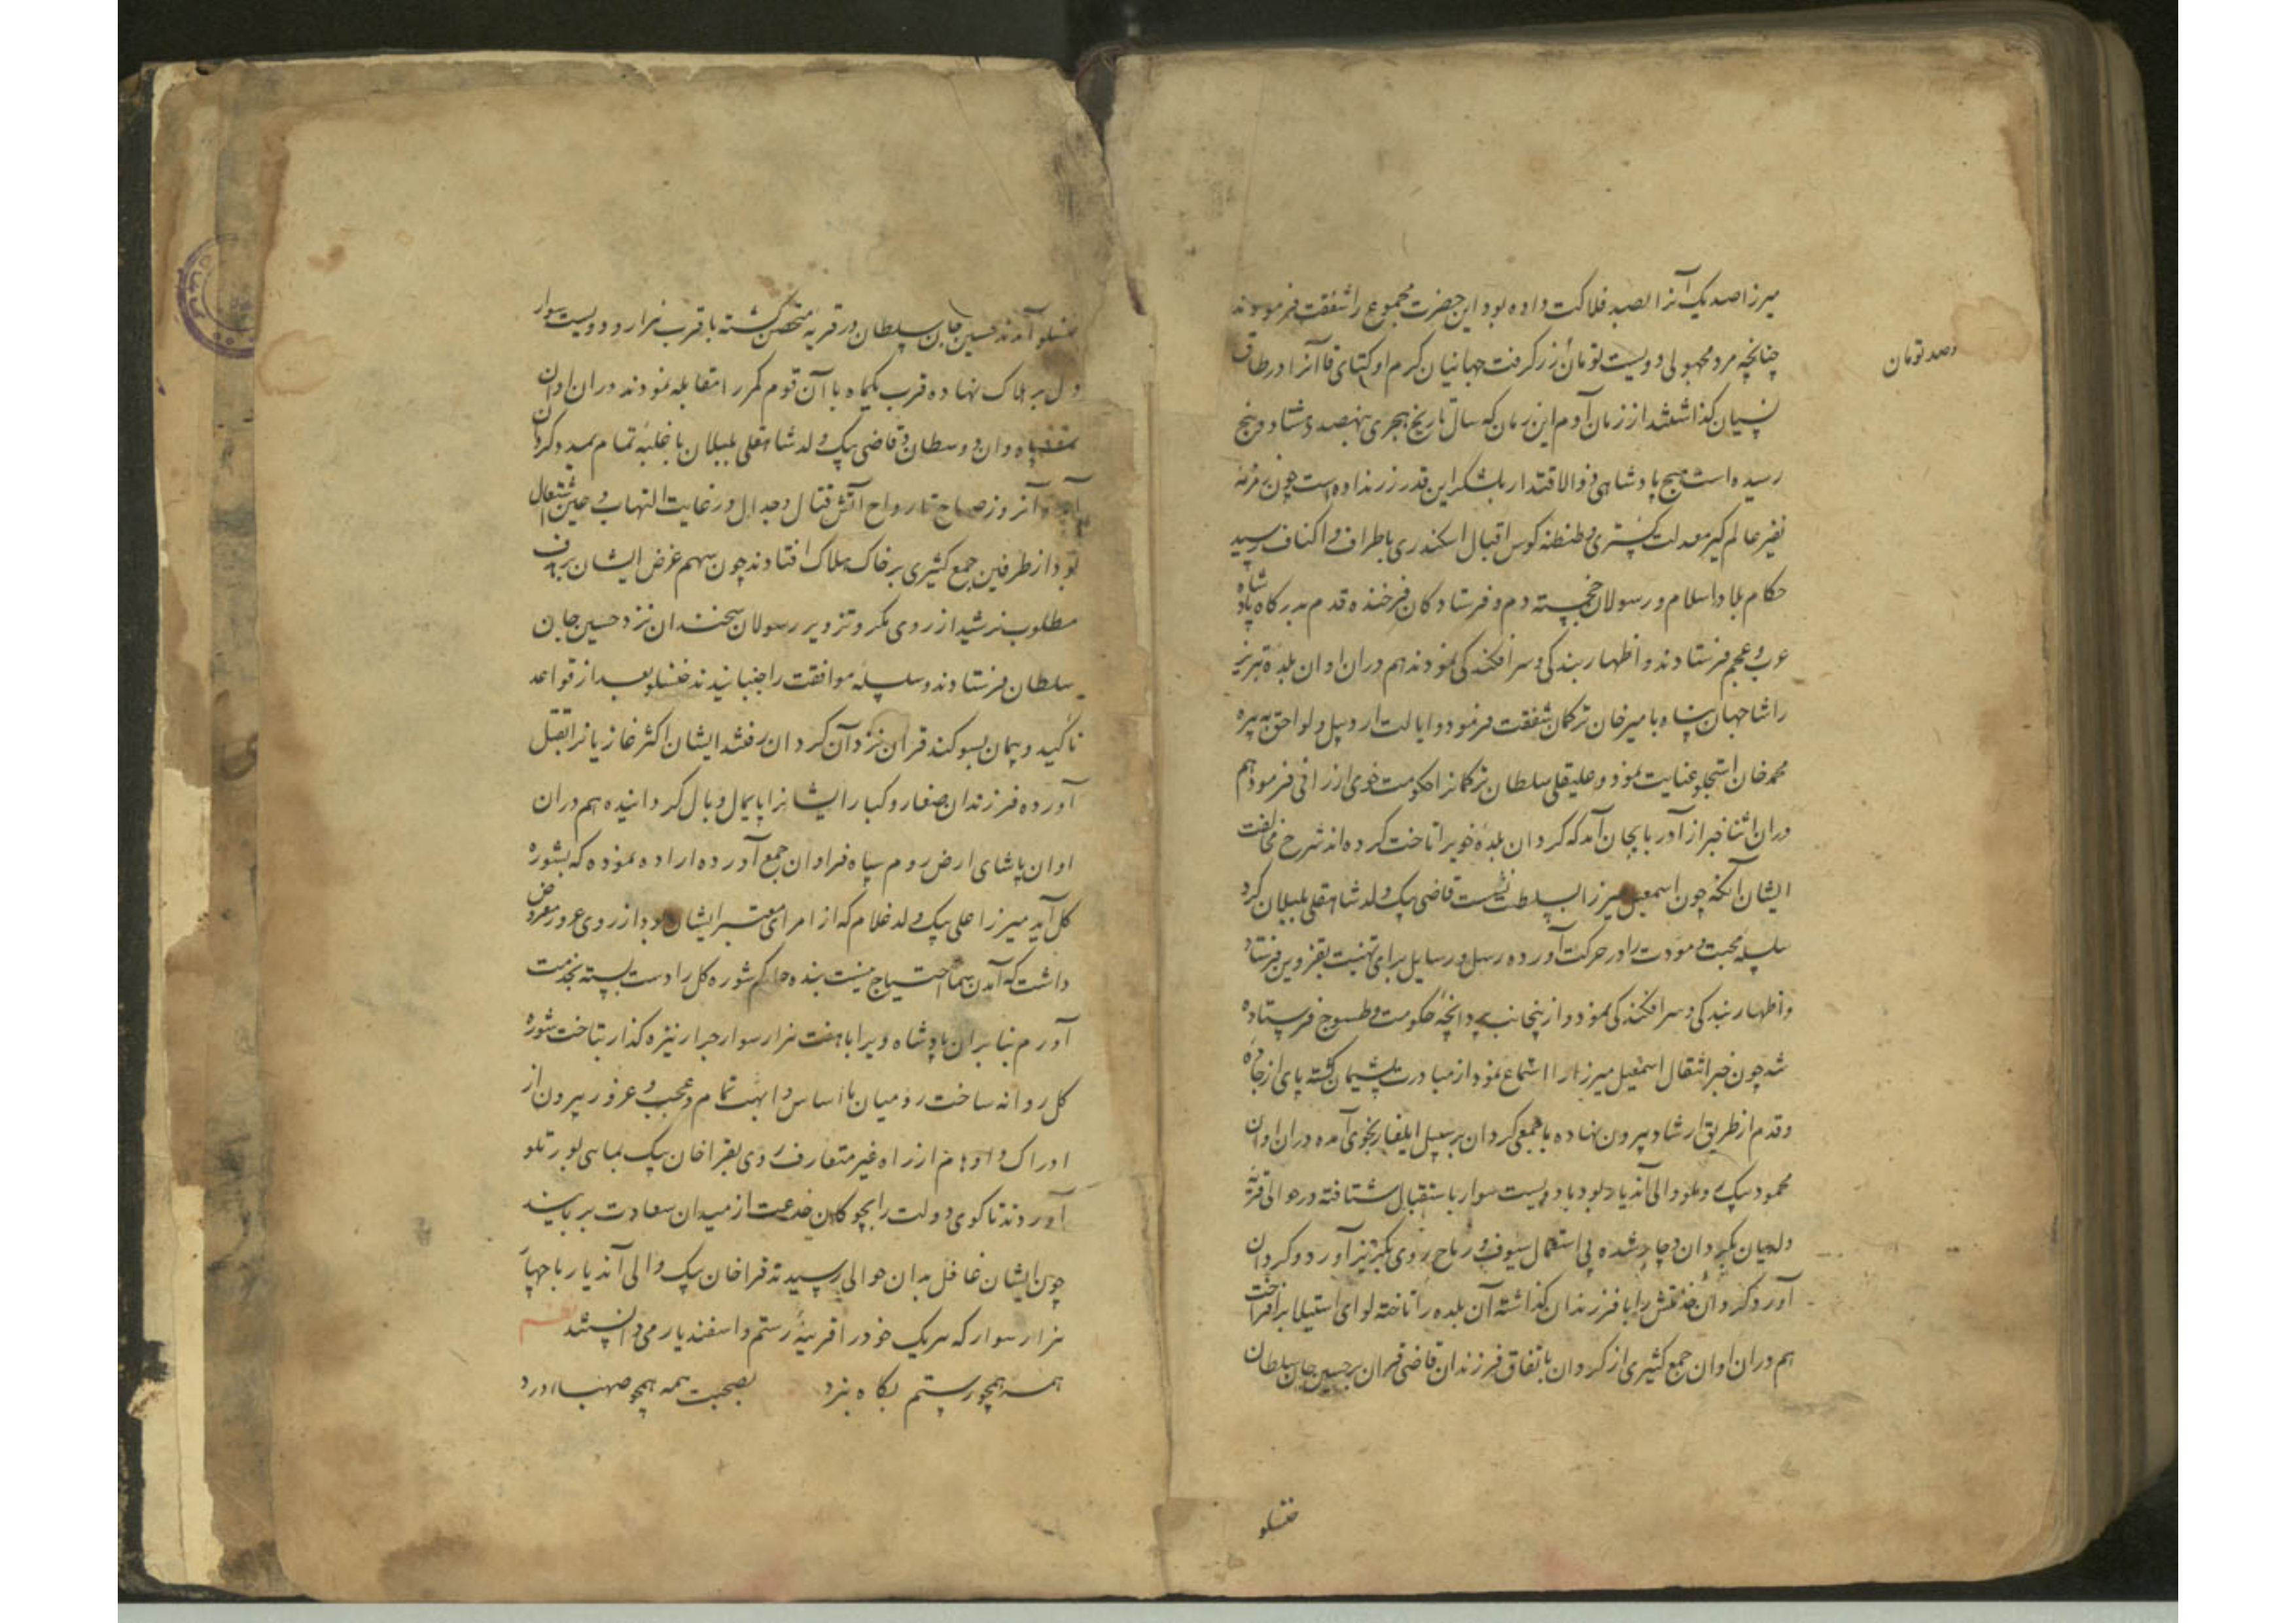 میرزا صد یک آنرا بصد فلاکت داده بود این حضرت مجموع را شفقت فرمودند
چنانچه مرد مجهولی دویست تومان زر گرفت جهانیان کرم اوکتای قاآنرا در طاق
دصد تومان
نسیان گذاشتند از زمان آدم این زمان که سال تاریخ هجری بنهصد و هشتاد و پنج
رسیده است هیچ پادشاهی ذوالاقتدار بلشکر این قدر زر نداده است چون مژده
نفیر عالم گیر معدلت گستری و طنطنه کوس اقبال اسکندری باطراف و اکناف رسید
حکام بلاد اسلام و رسولان خجسته دم و فرستادگان فرخنده قدم بدرگاه پادشاه
عرب و عجم فرستادند و اظهار بندگی و سرافکندگی نمودند هم دران اوان بلده تبریز
را شاه جهان پناه بامیرخان ترکمان شفقت فرمود و ایالت اردبیل و لواحق به پیره
محمد خان استجلو عنایت نمود و علیقلی سلطان ترکمانرا حکومت خوی ارزانی فرمود هم
دران اثنا خبر از آذربایجان آمد که کردان بلده خویرا تاخت کرده اند شرح مخالفت
ایشان آنکه چون اسمعیل میرزا بسلطنت نشست قاضی بیک ولد شاهقلی بلیلان کرد
سلسله محبت و مودت را در حرکت آورده رسل و رسایل برای تهنیت بقزوین فرستاد
و اظهار بندگی و سرافکندگی نمود و از پنجانب پروانچه حکومت طسوج فرستاده
شد چون خبر انتقال اسمعیل میرزا را استماع نمود از مبادرت پشیمان گشته پای از جاده
و قدم از طریق ارشاد بیرون نهاده با جمعی کردان بر سبیل ایلغار بخوی آمده دران اوان
محمود بیک روملو والی آندیار بود با دویست سوار باستقبال شتافته در حوالی قریه
ولدیان بکردان دچار شده بی استعمال سیوف و رماح روی بگریز آورد و کردان
آورد کردان را با فرزندان گذاشته آن بلده را تاخته لوای استیلا برافراخت
هم دران اوان جمع کثیری از کردان باتفاق فرزندان قاضی قران بر حسین جان سلطان
خنسلو
خنسلو آمدند حسین جان سلطان در قریه متحصن گشته با قرب هزار و دویست سوار
دل بر هلاک نهاده قرب یکماه با آن قوم مکرر مقابله نمودند دران اوان
قاضی بیک ولد شاهقلی بلیلان با غلبه تمام بمدد کردان
آنروز صباح تا رواح آتش قتال و جدال در غایت التهاب و عین اشتعال
بود از طرفین جمع کثیری بر خاک هلاک افتادند چون سهم غرض ایشان بهدف
مطلوب نرسید از روی مکر و تزویر رسولان سخندان نزد حسین جان
سلطان فرستادند و سلسله موافقت را جنبانیدند خنسلو بعد از قواعد
تاکید و پیمان بسوگند قرآن نزد آن کردان رفتند ایشان اکثر غازیانرا بقتل
آورده فرزندان صغار و کبار ایشانرا پایمال وبال گردانیده هم دران
اوان پاشای ارض روم سپاه فراوان جمع آورده اراده نموده که بشوره
کل آید میرزا علی بیک ولد غلام که از امرای معتبر ایشان بود از روی غرور معروض
داشت که آمدن شما احتیاج نیست بنده حاکم شوره کل را دست بسته بخدمت
آورم بنابران پادشاه ویرا با هفت هزار سوار جرار نیزه گذار بتاخت شوره
کل روانه ساخت رومیان با اساس و ابهت تمام و عجب و غرور بیرون از
ادراک و اوهام از راه غیر متعارف روی بقراخان بیک
آوردند تا گوی دولت را بچوگان خدعت از میدان سعادت بربایند
چون ایشان غافل بدان حوالی رسیدند قراخان بیک والی آندیار با چهار
هزار سوار که هر یک خود را قرینه رستم و اسفندیار می دانستند
همه همچو رستم بگاه نبرد بصحبت همه همچو